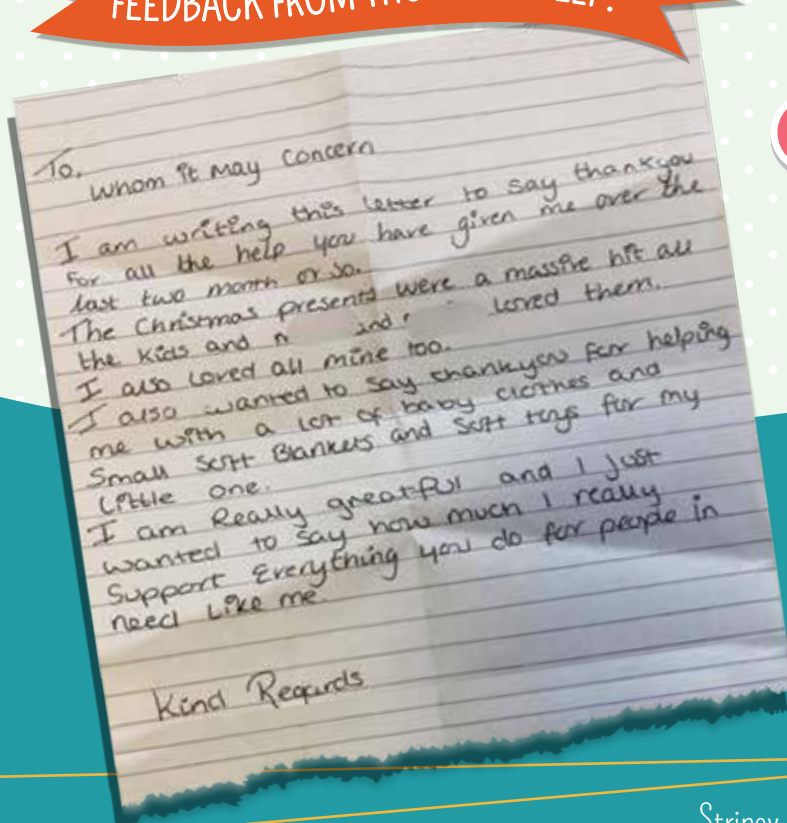 FEEDBACK FROM
To,
whom it may concern
I am writing this letter to say thankyou
For all the help you have given me over the
last two month or so.
The Christmas presents were a massive hit all
the kids and n and loved them.
I also loved all mine too.
I also wanted to say thankyou for helping
me with a lot of baby clothes and
Small Soft Blankets and Soft toys for my
little one.
I am Really greatful and I just
wanted to say how much I really
Support Everything you do for people in
need Like me.
Kind Regards
Stripey